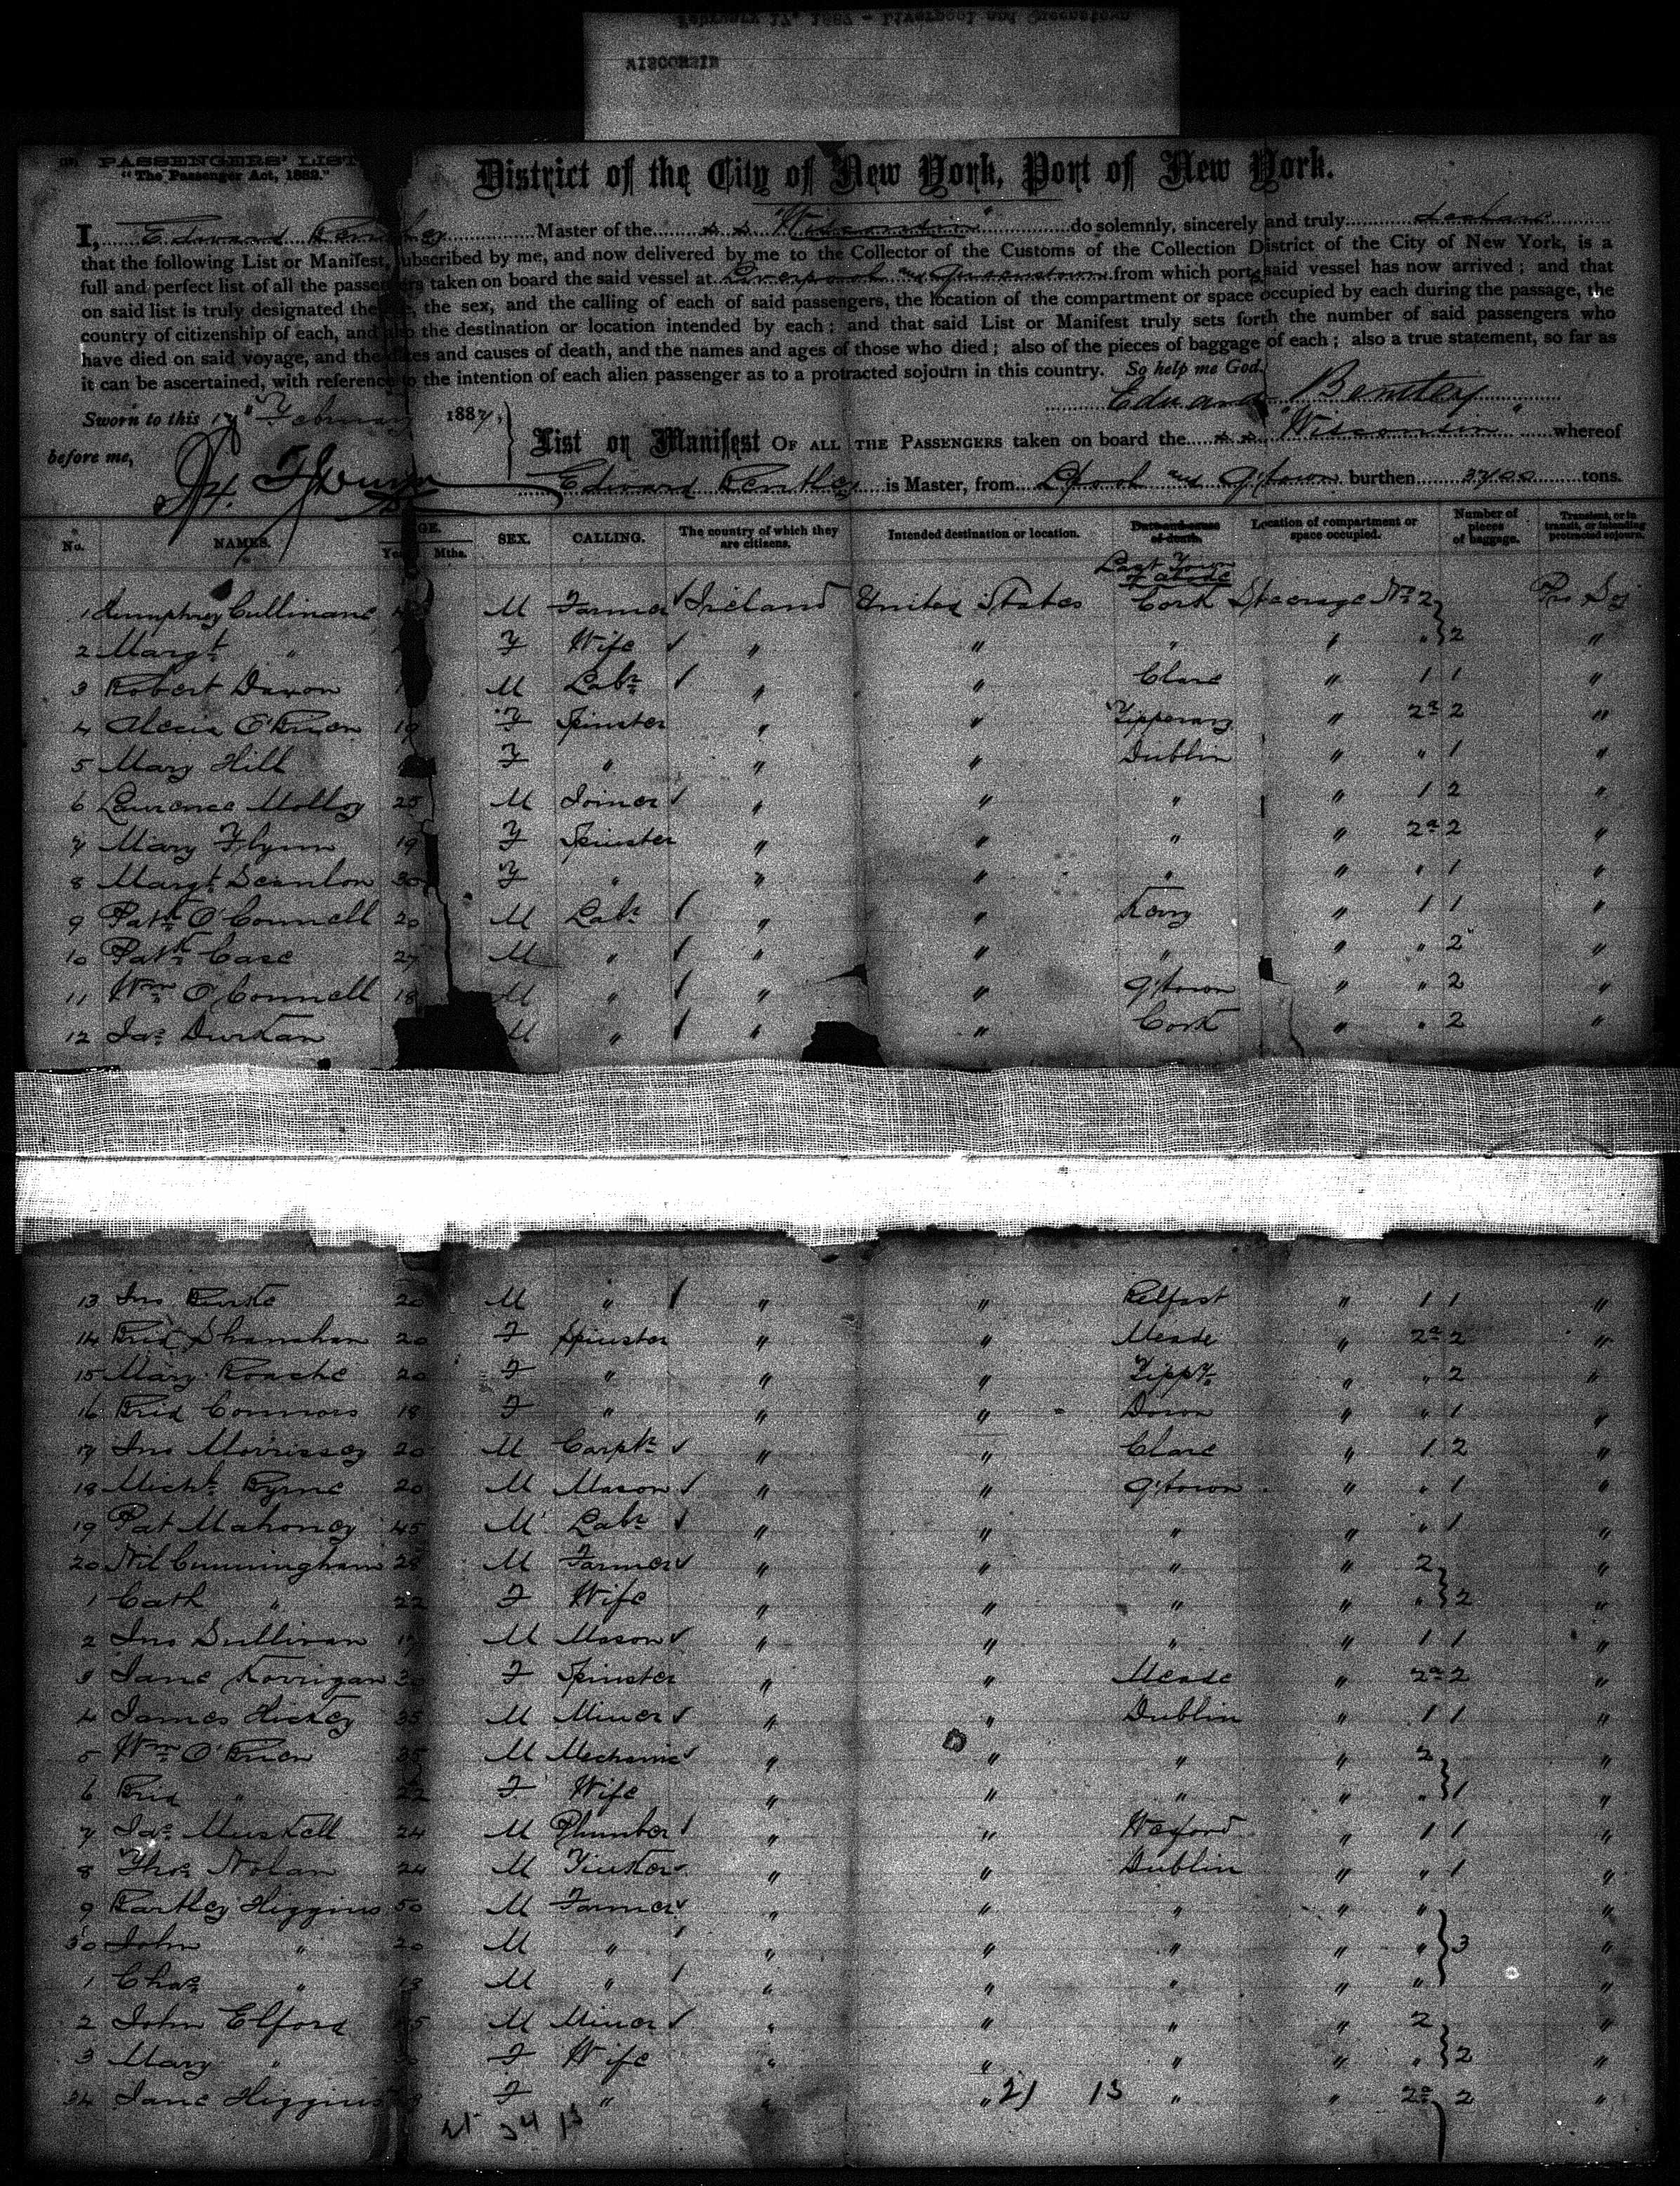 February 17, 1887 - Liverpool and Queenstown
WISCONSIN
PASSENGERS' LIST
"The Passenger Act, 1882."
District of the City of New York, Port of New York.
I, Edward Bentley Master of the S.S. "Wisconsin" do solemnly, sincerely and truly declare
that the following List or Manifest, subscribed by me, and now delivered by me to the Collector of the Customs of the Collection District of the City of New York, is a
full and perfect list of all the passengers taken on board the said vessel at Liverpool and Queenstown from which ports said vessel has now arrived; and that
on said list is truly designated the age, the sex, and the calling of each of said passengers, the location of the compartment or space occupied by each during the passage, the
country of citizenship of each, and also the destination or location intended by each; and that said List or Manifest truly sets forth the number of said passengers who
have died on said voyage, and the dates and causes of death, and the names and ages of those who died; also of the pieces of baggage of each; also a true statement, so far as
it can be ascertained, with reference to the intention of each alien passenger as to a protracted sojourn in this country. So help me God.
Edward Bentley
Sworn to this 17" February 1887,
before me,
List or Manifest OF ALL THE PASSENGERS taken on board the S.S. "Wisconsin" whereof
Edward Bentley is Master, from L'pool and Q'town burthen 3700 tons.
No. NAMES. AGE. Years Mths. SEX. CALLING. The country of which they are citizens. Intended destination or location. Date and cause of death. Location of compartment or space occupied. Number of pieces of baggage. Transient, or in transit, or intending protracted sojourn.
Last Town of abode
1 Humphrey Cullinane M Farmer Ireland United States Cork Steerage No 2 Pro Soj
2 Margt " F Wife " " " " " 2 "
3 Robert Daxon M Labr " " Clare " 1 1 "
4 Alecia O'Brien 19 F Spinster " " Tipperary " 2a 2 "
5 Mary Hill F " " " Dublin " " 1 "
6 Lawrence Molloy 25 M Joiner " " " " 1 2 "
7 Mary Flynn 19 F Spinster " " " " 2a 2 "
8 Margt Scanlon 30 F " " " " " " 1 "
9 Patk O'Connell 20 M Labr " " Kerry " 1 1 "
10 Patk Case 27 M " " " " " " 2 "
11 Wm O'Connell 18 M " " " Q'town " " 2 "
12 Jas Durkan M " " " Cork " " 2 "
13 Jno Burke 20 M " " " Belfast " 1 1 "
14 Brid Shanahan 20 F Spinster " " Meade " 2a 2 "
15 Mary Roache 20 F " " " Tippy " " 2 "
16 Brid Connors 18 F " " " Down " " 1 "
17 Jno Morrissey 20 M Carptr " " Clare " 1 2 "
18 Michl Byrne 20 M Mason " " Q'town " " 1 "
19 Pat Mahoney 45 M Labr " " " " " 1 "
20 Nil Cunningham 28 M Farmer " " " " 2 "
1 Cath " 22 F Wife " " " " " 2 "
2 Jno Sullivan M Mason " " " " 1 1 "
3 Jane Korrigan F Spinster " " Meade " 2a 2 "
4 James Hickey 35 M Miner " " Dublin " 1 1 "
5 Wm O'Brien 35 M Mechanic " " " " 2 "
6 Brid " 22 F Wife " " " " " 1 "
7 Jas Muskell 24 M Plumber " " Wexford " 1 1 "
8 Thos Nolan 24 M " " Dublin " " 1 "
9 Bartley Higgins 50 M Farmer " " " " " "
30 John " 20 M " " " " " " 3 "
1 Chas " 13 M " " " " " " "
2 John Elford M Miner " " " " 2 "
3 Mary " F Wife " " " " " 2 "
34 Jane Higgins F " " " " " 2a 2 "
21 13
21 34 13